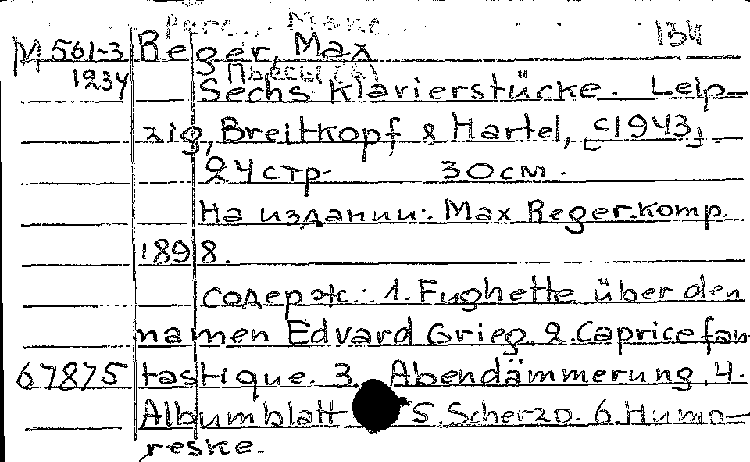 Регер, Макс 134
М 561-3 Reger, Max
1234 Пьесы (6)
Sechs Klavierstücke. Leip-
zig, Breitkopf & Hartel, [c1943].
24 стр. 30 см.
На издании: Max Reger. komp.
1898.
Содерж.: 1. Fughette über den
namen Edvard Grieg. 2. Caprice fan-
67875 tastique. 3. Abendämmerung. 4.
Albumblatt 5. Scherzo. 6. Humo-
reske.